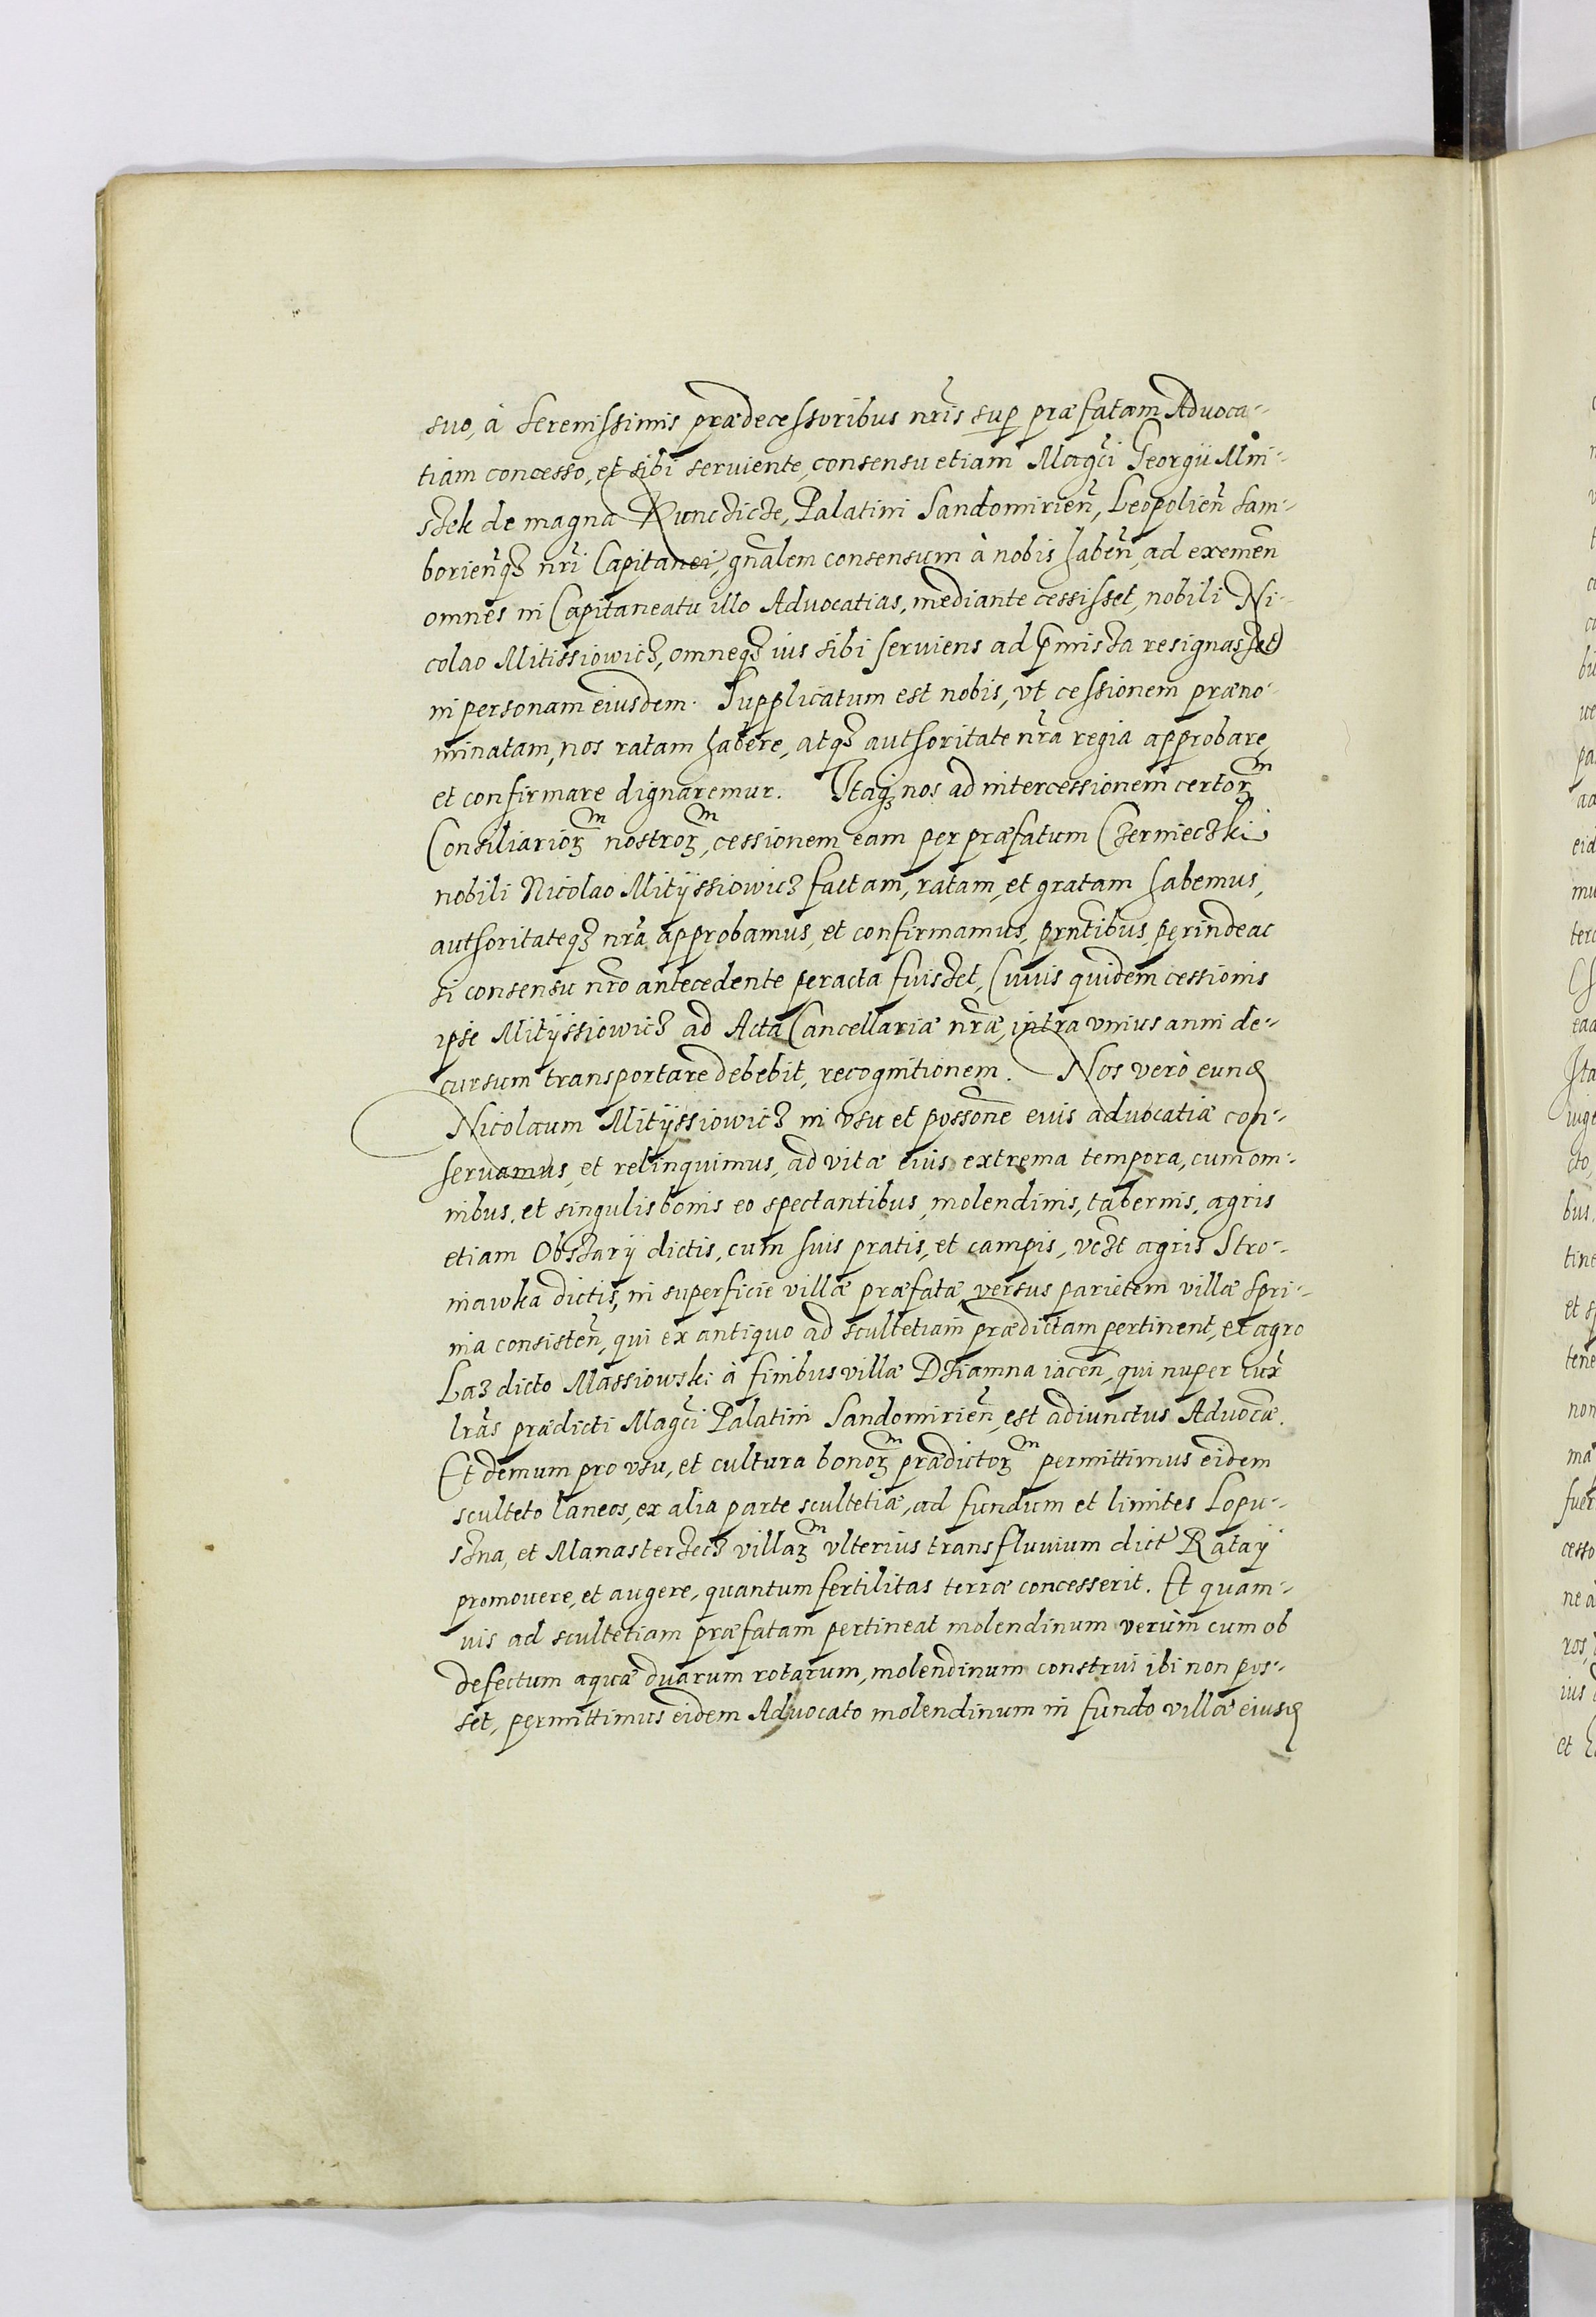 suo, à Serenissimis prædecessoribus nr̃is sup præfatam Advoca-
tiam concesso, et sibi seruiente, consensu etiam Mag̃ci Georgii Mni-
szek de magna Kunczicze, Palatini Sandomirień, Leopolień Sam-
borieńq3 nr̃i Capitanei, gñalem consensum à nobis habeñ, ad exemeñ
omnes in Capitaneatu illo Advocatias, mediante cessisset, nobili Ni-
colao Mitissiowicz, omneq3 ius sibi seruiens ad p̃missa resignasset
in personam eiusdem. Supplicatum est nobis, vt cessionem præno-
minatam, nos ratam habere, atq3 authoritate nr̃a regia approbare,
et confirmare dignaremur. Itaq3 nos ad intercessionem certoꝝm
Consiliarioꝝm nostroꝝm, cessionem eam per præfatum Czernieczki
nobili Nicolao Mitÿssiowicz factam, ratam, et gratam habemus,
authoritateq3 nr̃a approbamus, et confirmamus, prñtibus, perinde ac
si consensu nr̃o antecedente peracta fuisset, Cuius quidem cessionis
ipse Mitÿssiowicz ad Acta Cancellariæ nr̃æ, intra vnius anni de-
cursum transportare debebit, recognitionem. Nos verò eund
Nicolaum Mitÿssiowicz in vsu et possõne euis advocatiæ con-
seruamus, et relinquimus, ad vitæ eius extrema tempora, cum om-
nibus, et singulis bonis eo spectantibus, molendinis, tabernis, agris
etiam Obszarÿ dictis, cum suis pratis, et campis, vczt agris Stro-
niawka dictis, in superficie villæ præfatæ versus parietem villæ Spri-
nia consisteñ, qui ex antiquo ad scultetiam prædictam pertinent, et agro
Laz dicto Massiowski à finibus villæ Dziamna iaceñ, qui nuper iux̃
lr̃as prædicti Mag̃ci Palatini Sandomirień, est adiunctus Advocæ.
Et demum pro vsu, et cultura bonoꝝm prædictoꝝm permittimus eidem
sculteto laneos, ex alia parte scultetiæ, ad fundum et limites Lopu-
szna, et Manasterzecz villaꝝm vlterius trans fluuium dict Ratay
promouere, et augere, quantum fertilitas terræ concesserit. Et quam-
uis ad scultetiam præfatam pertineat molendinum verùm cum ob
defectum aquæ duarum rotarum, molendinum construi ibi non pos-
set, permittimus eidem Advocato molendinum in fundo villæ eiusd